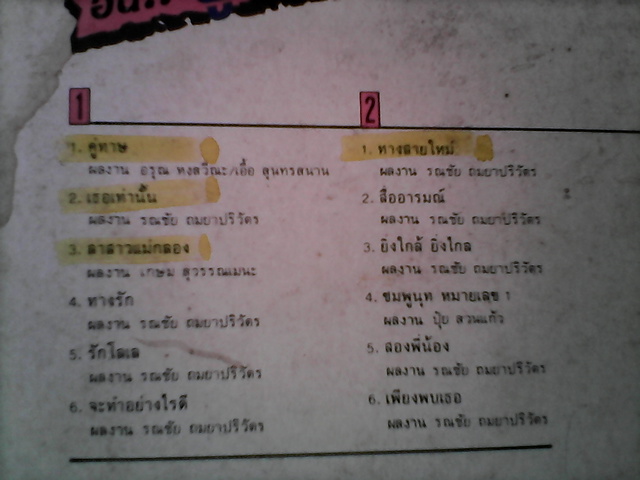 1
1. คู่ทาษ
ผลงาน อรุณ หงสวีณะ/เอื้อ สุนทรสนาน
2. เธอเท่านั้น
ผลงาน รณชัย ถมยาปริวัตร
3. ลาสาวแม่กลอง
ผลงาน เกษม สุวรรณเมนะ
4. ทางรัก
ผลงาน รณชัย ถมยาปริวัตร
5. รักโลเล
ผลงาน รณชัย ถมยาปริวัตร
6. จะทำอย่างไรดี
ผลงาน รณชัย ถมยาปริวัตร
2
1. ทางสายใหม่
ผลงาน รณชัย ถมยาปริวัตร
2. สื่ออารมณ์
ผลงาน รณชัย ถมยาปริวัตร
3. ยิ่งใกล้ ยิ่งไกล
ผลงาน รณชัย ถมยาปริวัตร
4. ชมพูนุท หมายเลข 1
ผลงาน ปุ้ย สวนแก้ว
5. สองพี่น้อง
ผลงาน รณชัย ถมยาปริวัตร
6. เพียงพบเธอ
ผลงาน รณชัย ถมยาปริวัตร